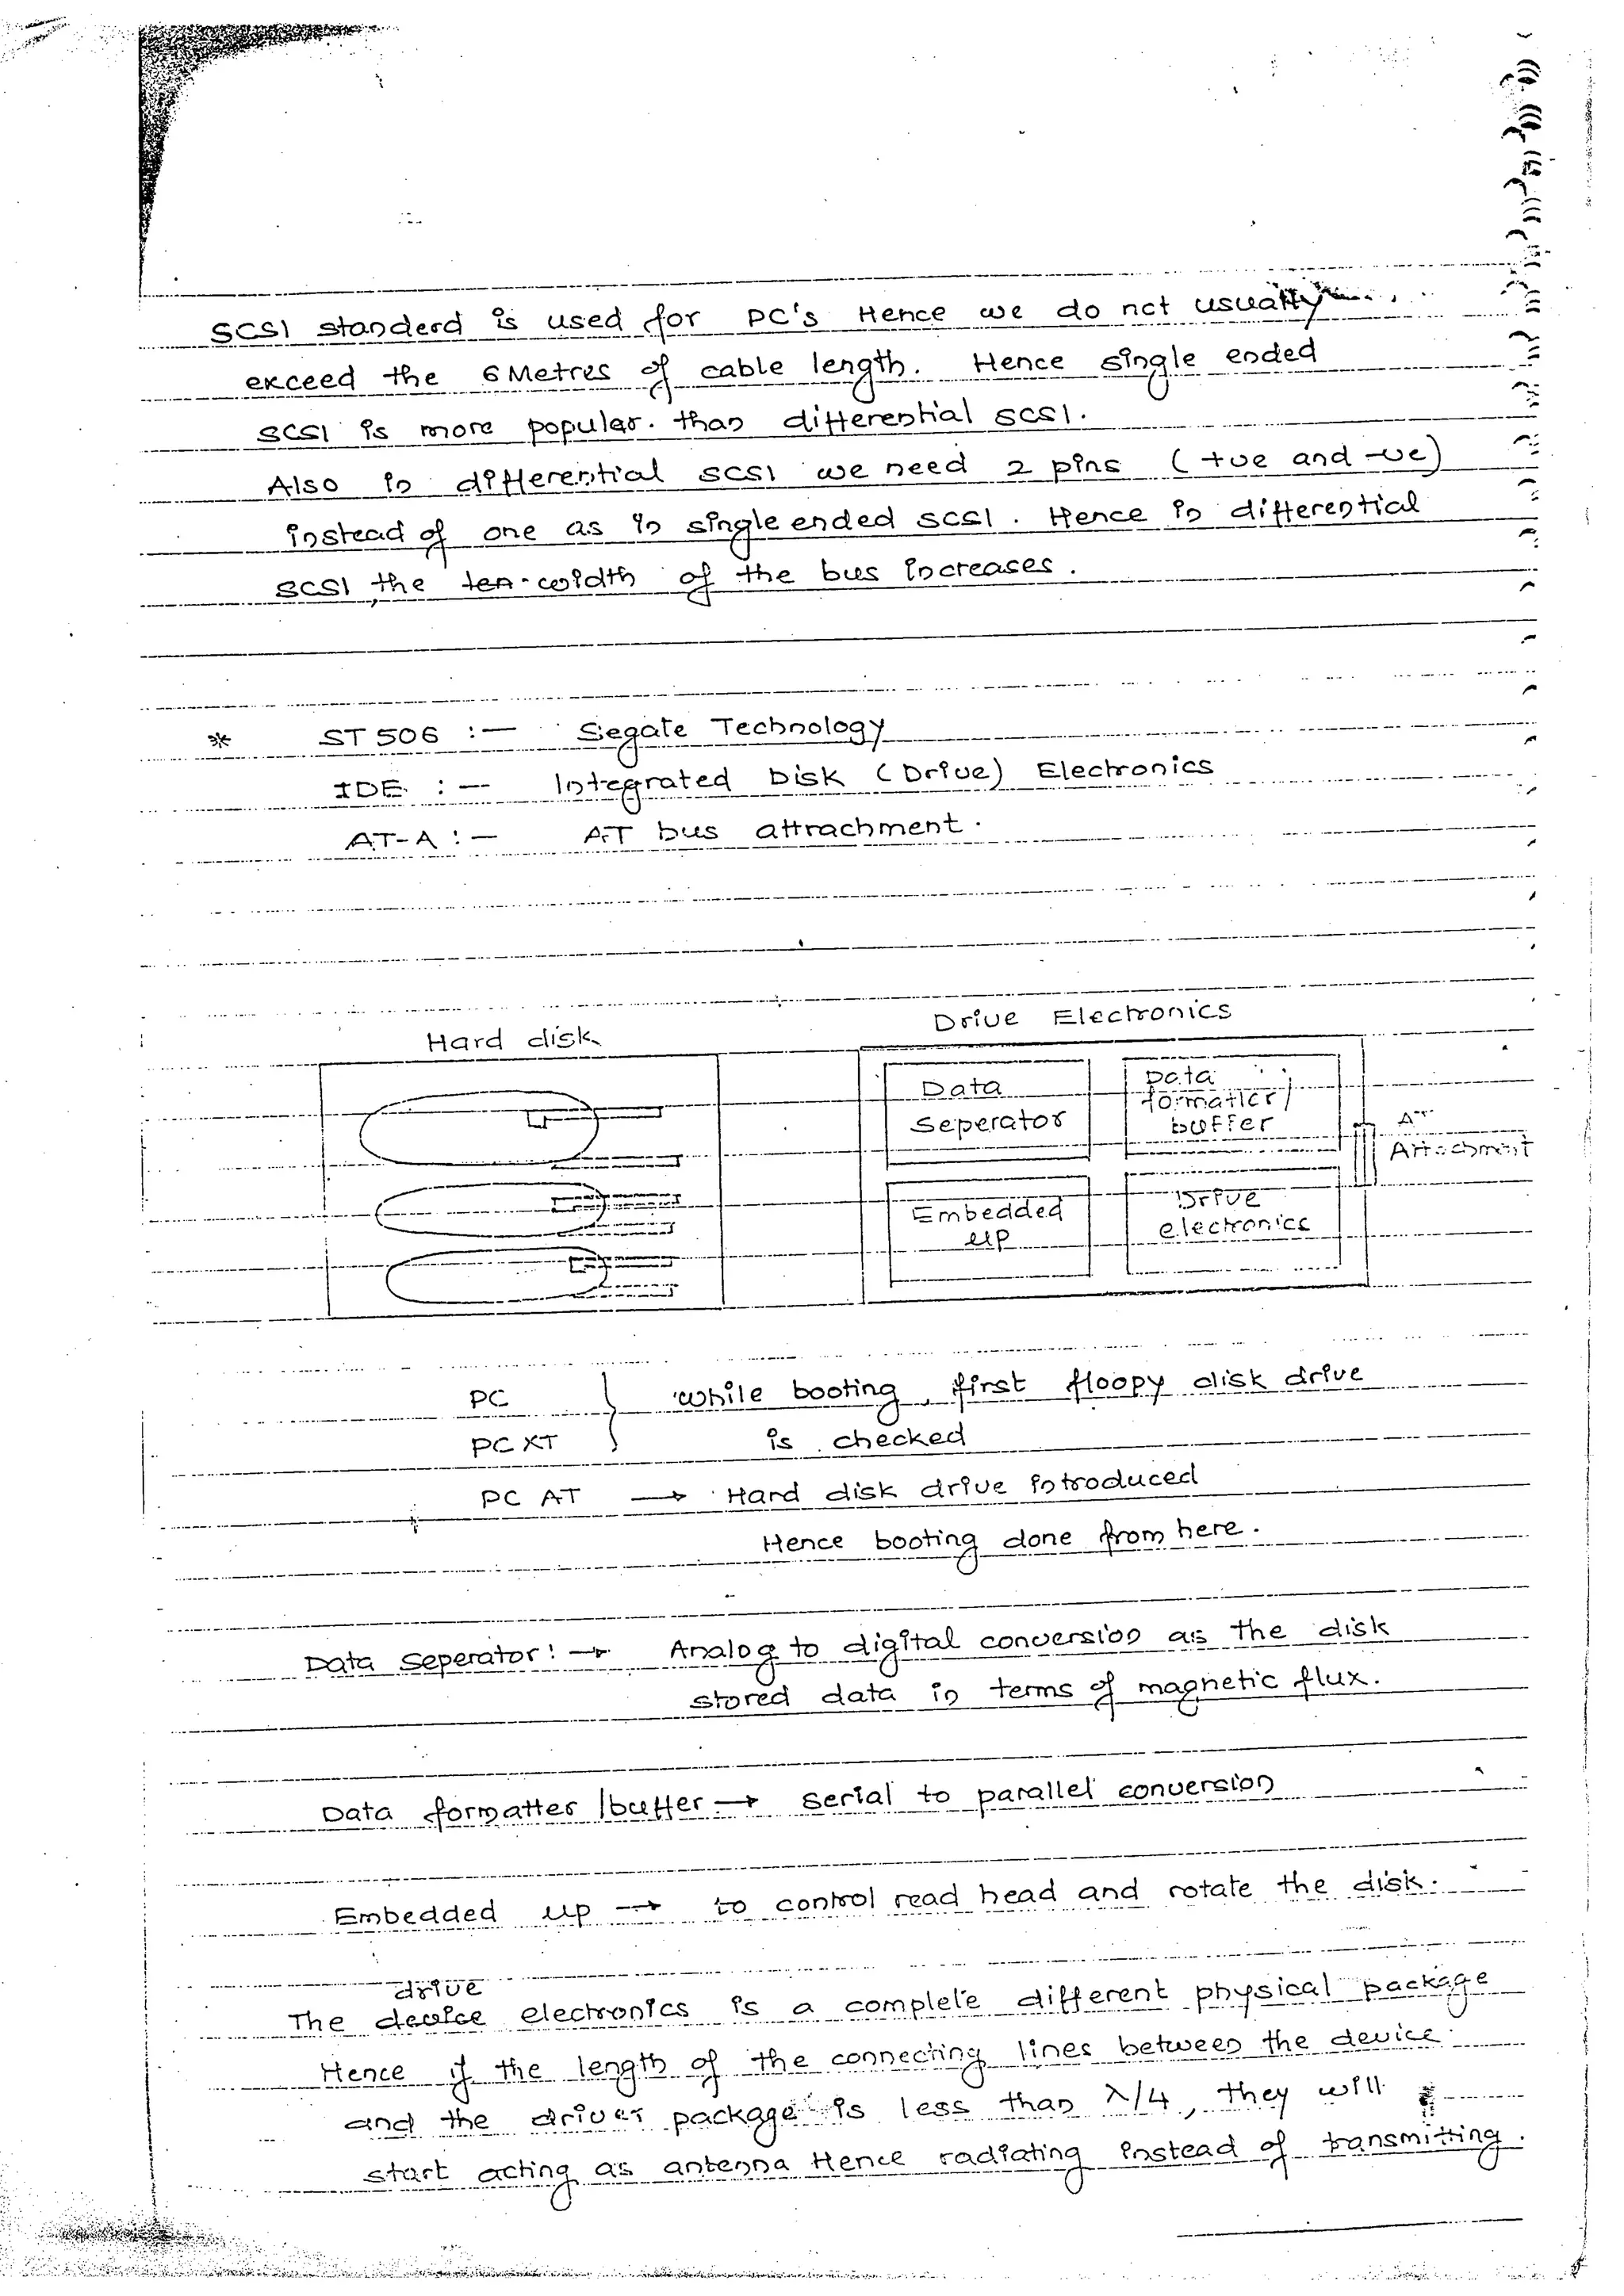 SCSI standerd is used for PC's Hence we do not usually
exceed the 6 Metres of cable length. Hence single ended
SCSI is more popular. than differential SCSI.
Also in differential SCSI we need 2 pins (+ve and -ve)
instead of one as in single ended SCSI. Hence in differential
SCSI, the width of the bus increases.
* ST 506 :— Segate Technology
IDE :— Integrated Disk (Drive) Electronics
AT-A :— AT bus attrachment.
Hard disk
Drive Electronics
Data
Seperator
Data
formatter/
buffer
AT
Attachment
Embedded
μP
Drive
electronics
PC } while booting, first floopy disk drive
PC XT } is checked
PC AT → Hard disk drive introduced
Hence booting done from here.
Data Seperator: → Analog to digital conversion as the disk
stored data in terms of magnetic flux.
Data formatter /buffer → serial to parallel conversion
Embedded μp → to control read head and rotate the disk.
drive
The device electronics is a complete different physical package
Hence if the length of the connecting lines between the device
and the driver package is less than λ/4, they will
start acting as antenna Hence radiating instead of transmitting.